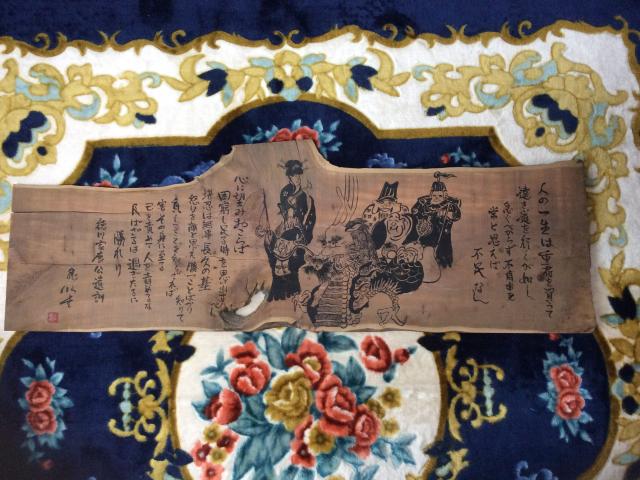 人の一生は重荷を負うて
遠き道を行くが如し
急ぐべからず不自由を
常と思えば
不足なし
心に望みおこらば
困窮し足る時を思い出すべし
堪忍は無事長久の基
怒りを敵と思え勝つことばかり知りて
負くることを知らざれば
害其の身に至る
己を責めて人を責めるな
及ばざるは過ぎたるに
勝れり
徳川家康公遺訓